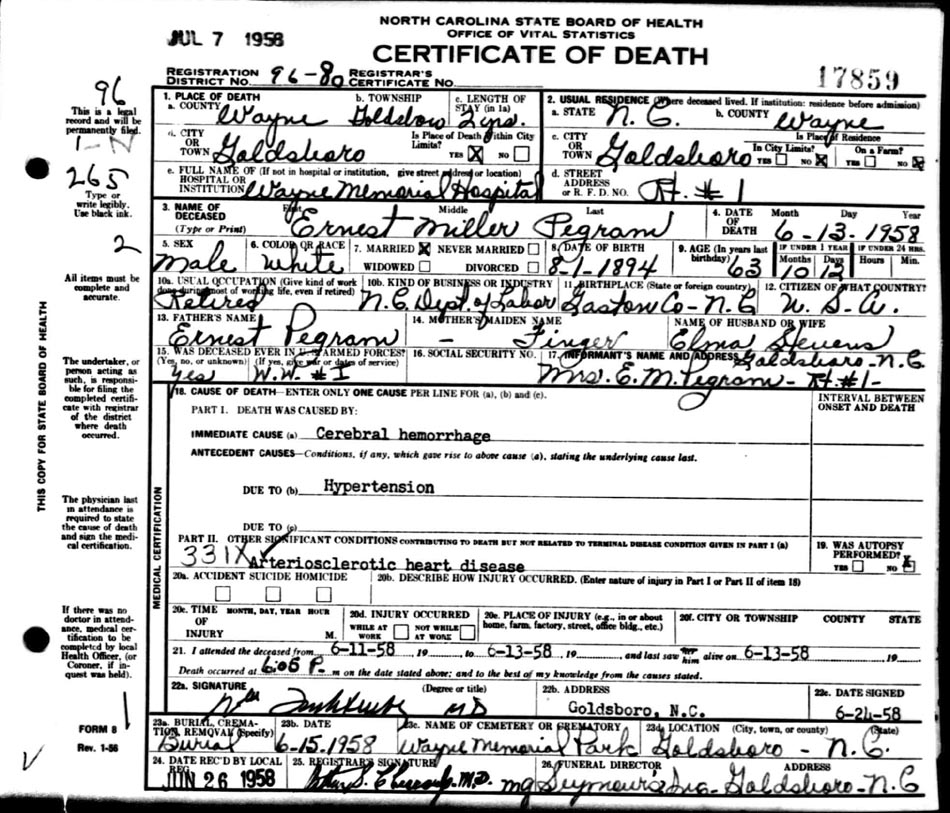 NORTH CAROLINA STATE BOARD OF HEALTH
OFFICE OF VITAL STATISTICS
JUL 7 1958
CERTIFICATE OF DEATH
REGISTRATION DISTRICT NO. 96-80 REGISTRAR'S CERTIFICATE NO.
17859
96
This is a legal record and will be permanently filed.
1-N
265
Type or write legibly. Use black ink.
2
All items must be complete and accurate.
The undertaker, or person acting as such, is responsible for filing the completed certificate with registrar of the district where death occurred.
The physician last in attendance is required to state the cause of death and sign the medical certification.
If there was no doctor in attendance, medical certification to be completed by local Health Officer, (or Coroner, if inquest was held).
1
FORM 8
Rev. 1-56
THIS COPY FOR STATE BOARD OF HEALTH
1. PLACE OF DEATH
a. COUNTY Wayne
b. TOWNSHIP Goldsboro
c. LENGTH OF STAY (in 1a)
2. USUAL RESIDENCE (Where deceased lived. If institution: residence before admission)
a. STATE N.C.
b. COUNTY Wayne
d. CITY OR TOWN Goldsboro
Is Place of Death Within City Limits? YES X NO
c. CITY OR TOWN Goldsboro
Is Place of Residence
In City Limits? YES NO X
On a Farm? YES NO X
e. FULL NAME OF (If not in hospital or institution, give street address or location) HOSPITAL OR INSTITUTION Wayne Memorial Hospital
d. STREET ADDRESS or R. F. D. NO. Rt. #1
3. NAME OF DECEASED (Type or Print)
First Middle Last
Ernest Miller Pegram
4. DATE OF DEATH Month Day Year
6-13-1958
5. SEX Male
6. COLOR OR RACE White
7. MARRIED X NEVER MARRIED WIDOWED DIVORCED
8. DATE OF BIRTH 8-1-1894
9. AGE (In years last birthday) 63
IF UNDER 1 YEAR Months 10 Days 12
IF UNDER 24 HRS. Hours Min.
10a. USUAL OCCUPATION (Give kind of work done during most of working life, even if retired) Retired
10b. KIND OF BUSINESS OR INDUSTRY N.C. Dept. of Labor
11. BIRTHPLACE (State or foreign country) Gaston Co-N.C
12. CITIZEN OF WHAT COUNTRY? U.S.A.
13. FATHER'S NAME Ernest Pegram
14. MOTHER'S MAIDEN NAME - Finger
NAME OF HUSBAND OR WIFE Elma Stevens
15. WAS DECEASED EVER IN U.S. ARMED FORCES? (Yes, no, or unknown) (If yes, give war or dates of service)
Yes W.W. #I
16. SOCIAL SECURITY NO.
17. INFORMANT'S NAME AND ADDRESS Goldsboro-N.C
Mrs. E.M. Pegram-Rt.#1-
18. CAUSE OF DEATH—ENTER ONLY ONE CAUSE PER LINE FOR (a), (b) and (c).
INTERVAL BETWEEN ONSET AND DEATH
MEDICAL CERTIFICATION
PART I. DEATH WAS CAUSED BY:
IMMEDIATE CAUSE (a) Cerebral hemorrhage
ANTECEDENT CAUSES—Conditions, if any, which gave rise to above cause (a), stating the underlying cause last.
DUE TO (b) Hypertension
DUE TO (c)
PART II. OTHER SIGNIFICANT CONDITIONS CONTRIBUTING TO DEATH BUT NOT RELATED TO TERMINAL DISEASE CONDITION GIVEN IN PART I (a)
331X Arteriosclerotic heart disease
19. WAS AUTOPSY PERFORMED? YES NO X
20a. ACCIDENT SUICIDE HOMICIDE
20b. DESCRIBE HOW INJURY OCCURRED. (Enter nature of injury in Part I or Part II of item 18)
20c. TIME OF INJURY MONTH, DAY, YEAR HOUR M.
20d. INJURY OCCURRED WHILE AT WORK NOT WHILE AT WORK
20e. PLACE OF INJURY (e.g., in or about home, farm, factory, street, office bldg., etc.)
20f. CITY OR TOWNSHIP COUNTY STATE
21. I attended the deceased from 6-11-58, 19 to 6-13-58, 19 and last saw her him alive on 6-13-58 19
Death occurred at 6:05 P. m on the date stated above; and to the best of my knowledge from the causes stated.
22a. SIGNATURE (Degree or title) MD
22b. ADDRESS Goldsboro, N.C.
22c. DATE SIGNED 6-24-58
23a. BURIAL, CREMATION, REMOVAL (Specify) Burial
23b. DATE 6-15-1958
23c. NAME OF CEMETERY OR CREMATORY Wayne Memorial Park
23d. LOCATION (City, town, or county) (State) Goldsboro - N.C.
24. DATE REC'D BY LOCAL REG. JUN 26 1958
25. REGISTRAR'S SIGNATURE M.D. mg
26. FUNERAL DIRECTOR ADDRESS
Seymour's Goldsboro-N.C